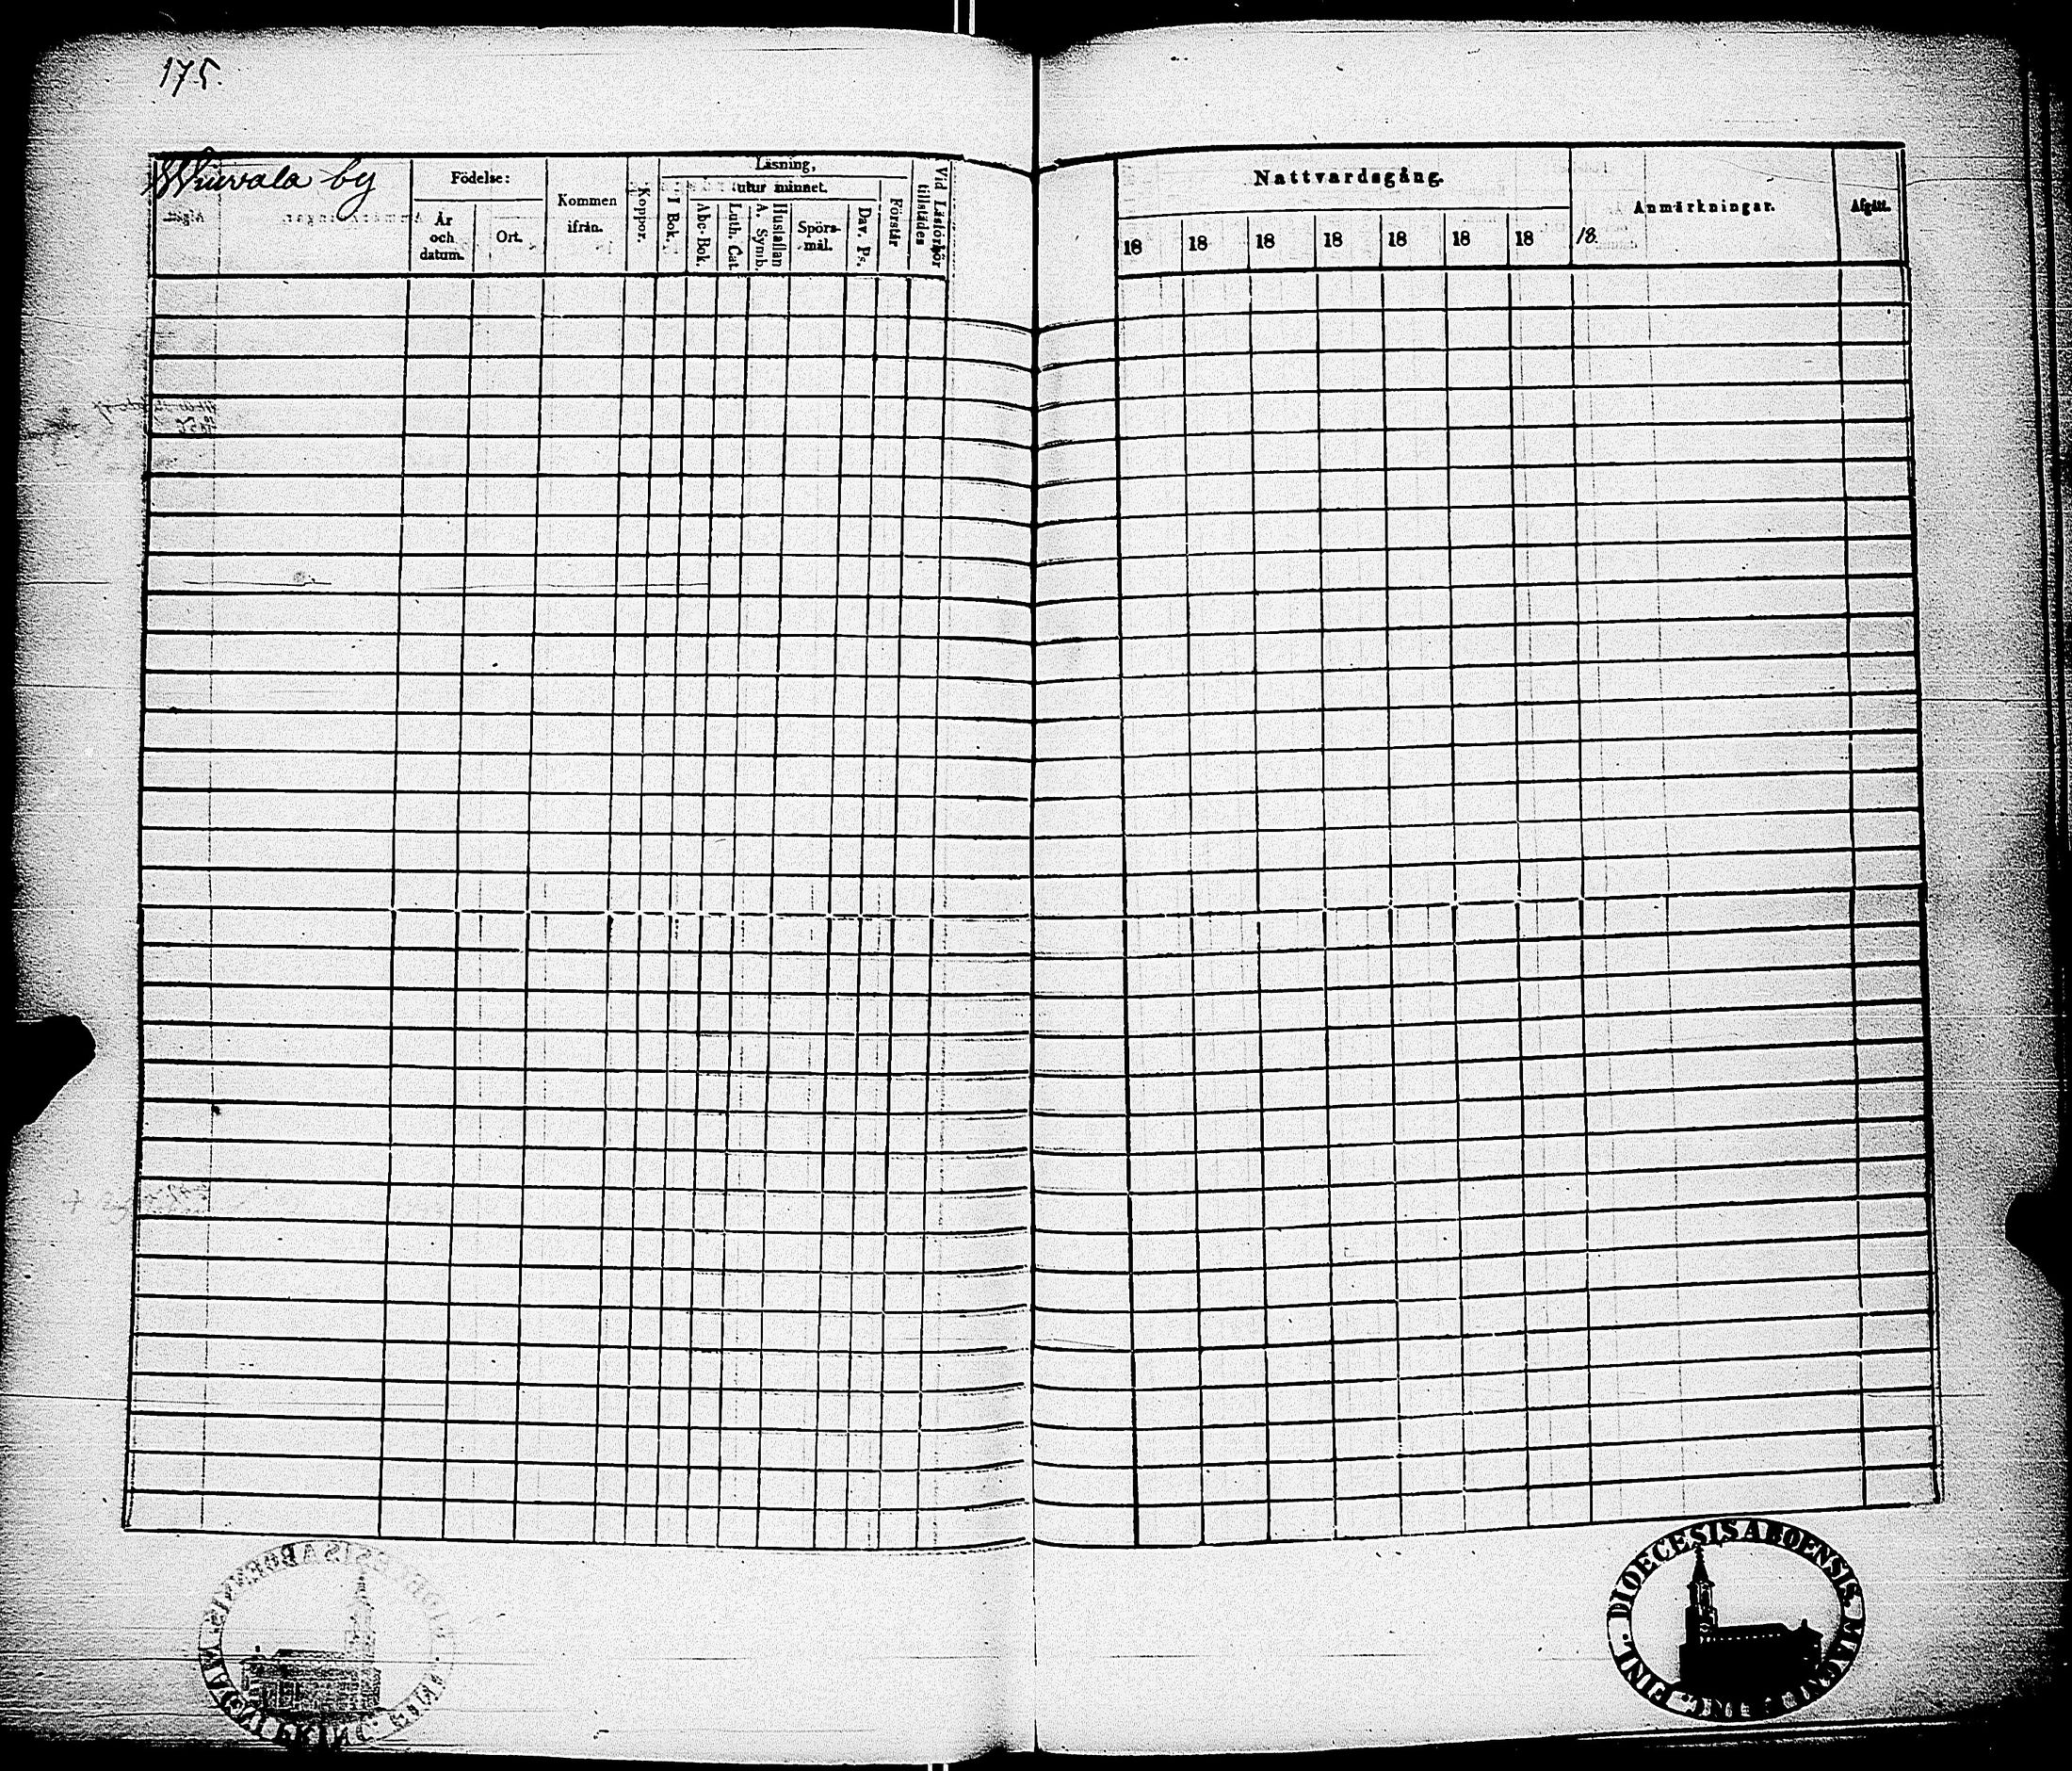 175.
by
Födelse:
År
och
datum.
Ort.
Kommen
ifrån.
Koppor.
Läsning,
utur minnet.
I Bok.
Abc-Bok.
Luth. Cat.
Hustaflan
A. Symb.
Spörs-
mål.
Dav. Ps.
Förstår
Vid Läsförhör
tillstädes
Nattvardsgång.
18 18 18 18 18 18 18 18
Anmärkningar.
Afgått.
DIOECESIS ABOENSIS. MAGN. PRINC. FINL.